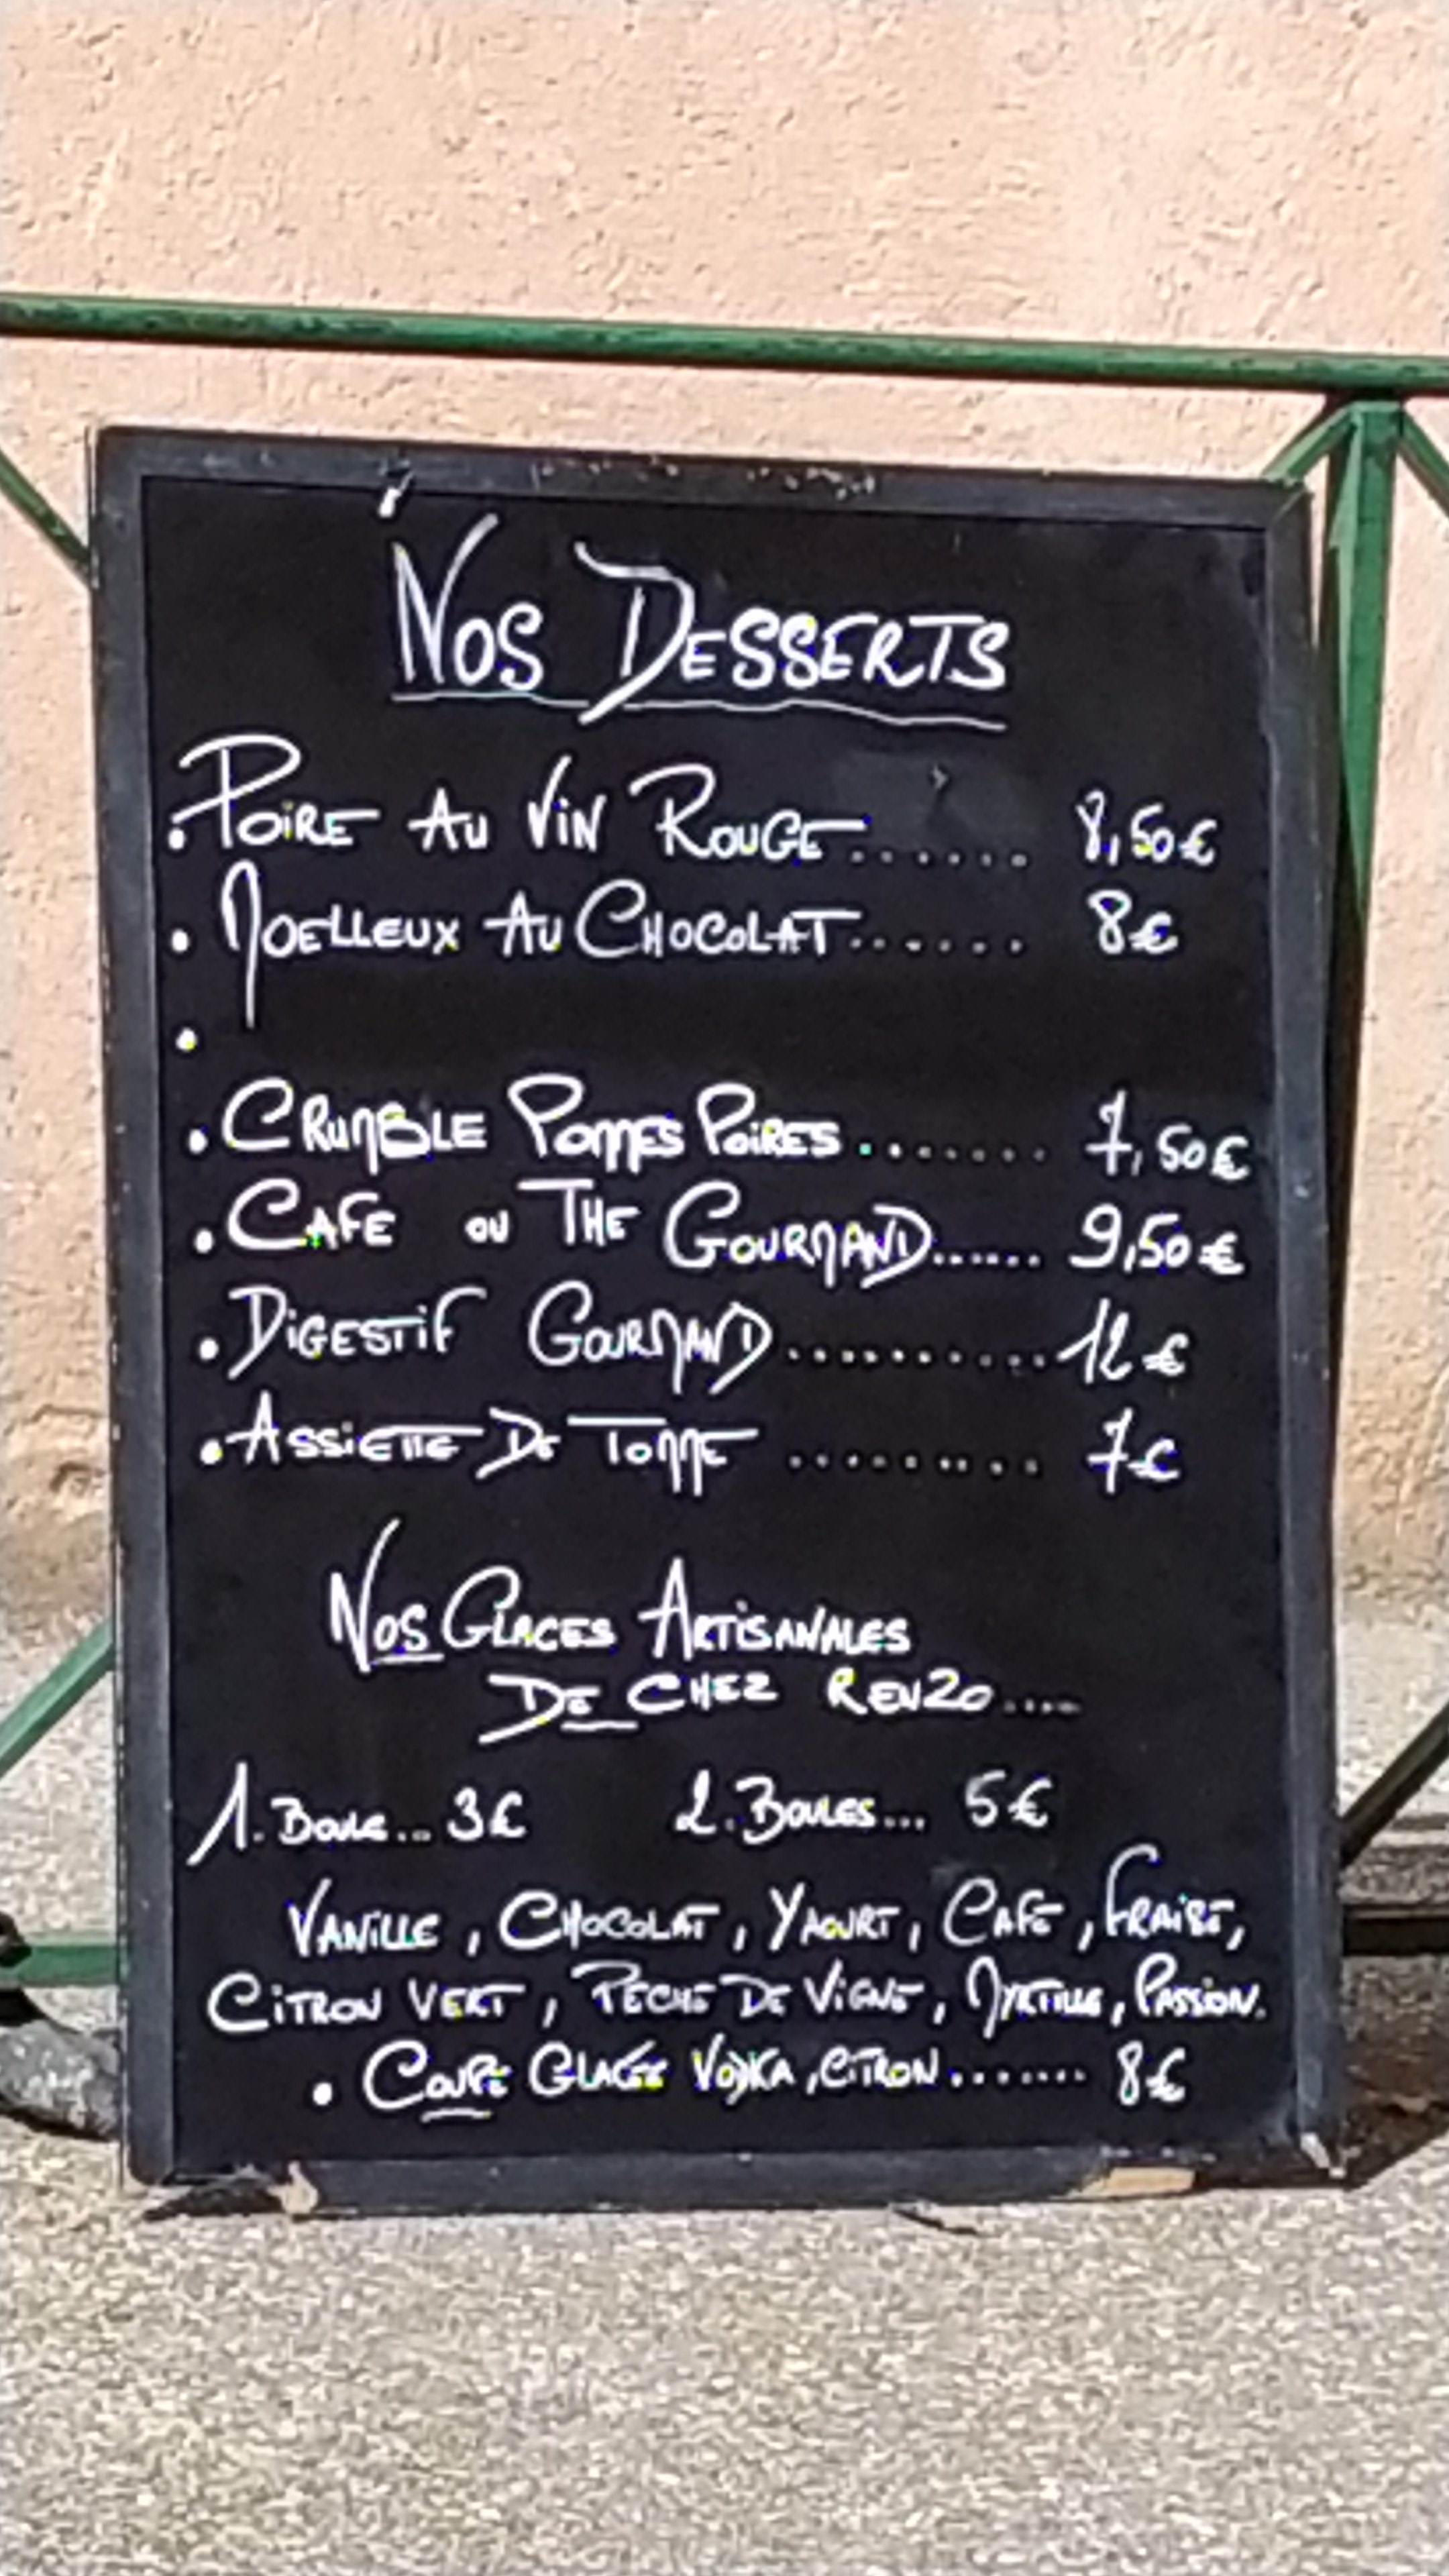 Nos Desserts
• Poire Au Vin Rouge....... 8,50€
• Moelleux Au Chocolat....... 8€
•
• Crumble Pommes Poires....... 7,50€
• Cafe ou The Gourmand...... 9,50€
• Digestif Gourmand.......... 12€
• Assiette De Tomme ......... 7€
Nos Glaces Artisanales
De Chez Renzo....
1. Boule... 3€ 2. Boules... 5€
Vanille, Chocolat, Yaourt, Cafe, Fraise,
Citron Vert, Peche De Vigne, Myrtille, Passion.
• Coupe Glacee Vodka, Citron....... 8€